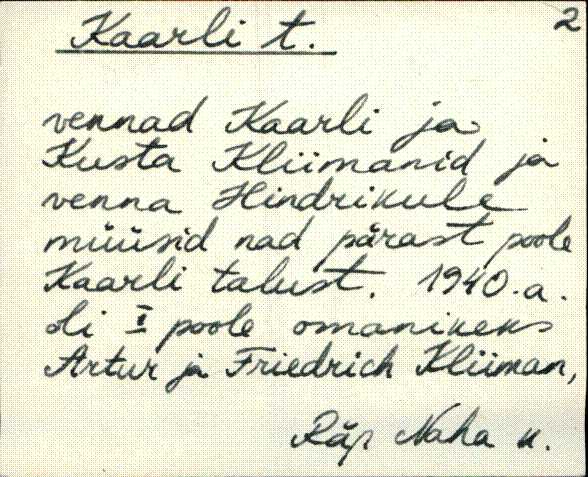 2
Kaarli t.
vennad Kaarli ja
Kusta Kliimanid ja
venna Hindrikule
müüsid nad pärast poole
Kaarli talust. 1940.a.
oli I poole omanikeks
Artur ja Friedrich Kliiman,
Räp Naha k.